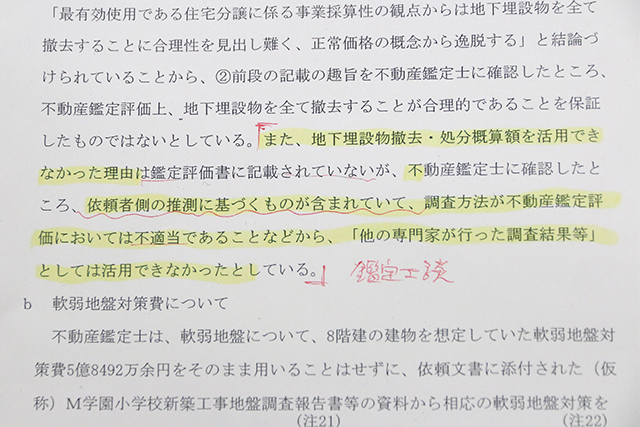 「最有効使用である住宅分譲に係る事業採算性の観点からは地下埋設物を全て
撤去することに合理性を見出し難く、正常価格の概念から逸脱する」と結論づ
けられていることから、②前段の記載の趣旨を不動産鑑定士に確認したところ、
不動産鑑定評価上、地下埋設物を全て撤去することが合理的であることを保証
したものではないとしている。また、地下埋設物撤去・処分概算額を活用でき
なかった理由は鑑定評価書に記載されていないが、不動産鑑定士に確認したと
ころ、依頼者側の推測に基づくものが含まれていて、調査方法が不動産鑑定評
価においては不適当であることなどから、「他の専門家が行った調査結果等」
としては活用できなかったとしている。 鑑定士談
b 軟弱地盤対策費について
不動産鑑定士は、軟弱地盤について、8階建の建物を想定していた軟弱地盤対
策費5億8492万余円をそのまま用いることはせずに、依頼文書に添付された（仮
称）M学園小学校新築工事地盤調査報告書等の資料から相応の軟弱地盤対策を
(注21) (注22)